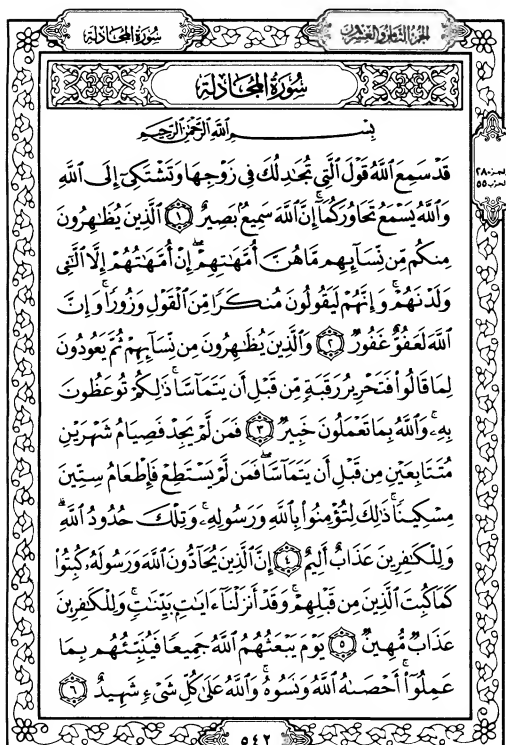 سُورَةُ المُجَادلة
الجزء الثامن والعشرون
سُورَةُ المُجَادلة
بِسْمِ ٱللَّهِ ٱلرَّحْمَٰنِ ٱلرَّحِيمِ
قَدْ سَمِعَ ٱللَّهُ قَوْلَ ٱلَّتِي تُجَٰدِلُكَ فِي زَوْجِهَا وَتَشْتَكِيٓ إِلَى ٱللَّهِ
وَٱللَّهُ يَسْمَعُ تَحَاوُرَكُمَآ إِنَّ ٱللَّهَ سَمِيعٌۢ بَصِيرٌ ۝١ ٱلَّذِينَ يُظَٰهِرُونَ
مِنكُم مِّن نِّسَآئِهِم مَّا هُنَّ أُمَّهَٰتِهِمْۖ إِنْ أُمَّهَٰتُهُمْ إِلَّا ٱلَّٰٓـِٔي
وَلَدْنَهُمْۚ وَإِنَّهُمْ لَيَقُولُونَ مُنكَرًا مِّنَ ٱلْقَوْلِ وَزُورًاۚ وَإِنَّ
ٱللَّهَ لَعَفُوٌّ غَفُورٌ ۝٢ وَٱلَّذِينَ يُظَٰهِرُونَ مِن نِّسَآئِهِمْ ثُمَّ يَعُودُونَ
لِمَا قَالُوا۟ فَتَحْرِيرُ رَقَبَةٍ مِّن قَبْلِ أَن يَتَمَآسَّاۚ ذَٰلِكُمْ تُوعَظُونَ
بِهِۦۚ وَٱللَّهُ بِمَا تَعْمَلُونَ خَبِيرٌ ۝٣ فَمَن لَّمْ يَجِدْ فَصِيَامُ شَهْرَيْنِ
مُتَتَابِعَيْنِ مِن قَبْلِ أَن يَتَمَآسَّاۖ فَمَن لَّمْ يَسْتَطِعْ فَإِطْعَامُ سِتِّينَ
مِسْكِينًاۚ ذَٰلِكَ لِتُؤْمِنُوا۟ بِٱللَّهِ وَرَسُولِهِۦۚ وَتِلْكَ حُدُودُ ٱللَّهِۗ
وَلِلْكَٰفِرِينَ عَذَابٌ أَلِيمٌ ۝٤ إِنَّ ٱلَّذِينَ يُحَآدُّونَ ٱللَّهَ وَرَسُولَهُۥ كُبِتُوا۟
كَمَا كُبِتَ ٱلَّذِينَ مِن قَبْلِهِمْۚ وَقَدْ أَنزَلْنَآ ءَايَٰتٍۭ بَيِّنَٰتٍۚ وَلِلْكَٰفِرِينَ
عَذَابٌ مُّهِينٌ ۝٥ يَوْمَ يَبْعَثُهُمُ ٱللَّهُ جَمِيعًا فَيُنَبِّئُهُم بِمَا
عَمِلُوٓا۟ۚ أَحْصَىٰهُ ٱللَّهُ وَنَسُوهُۚ وَٱللَّهُ عَلَىٰ كُلِّ شَىْءٍ شَهِيدٌ ۝٦
الجزء ٢٨
الحزب ٥٥
٥٤٢